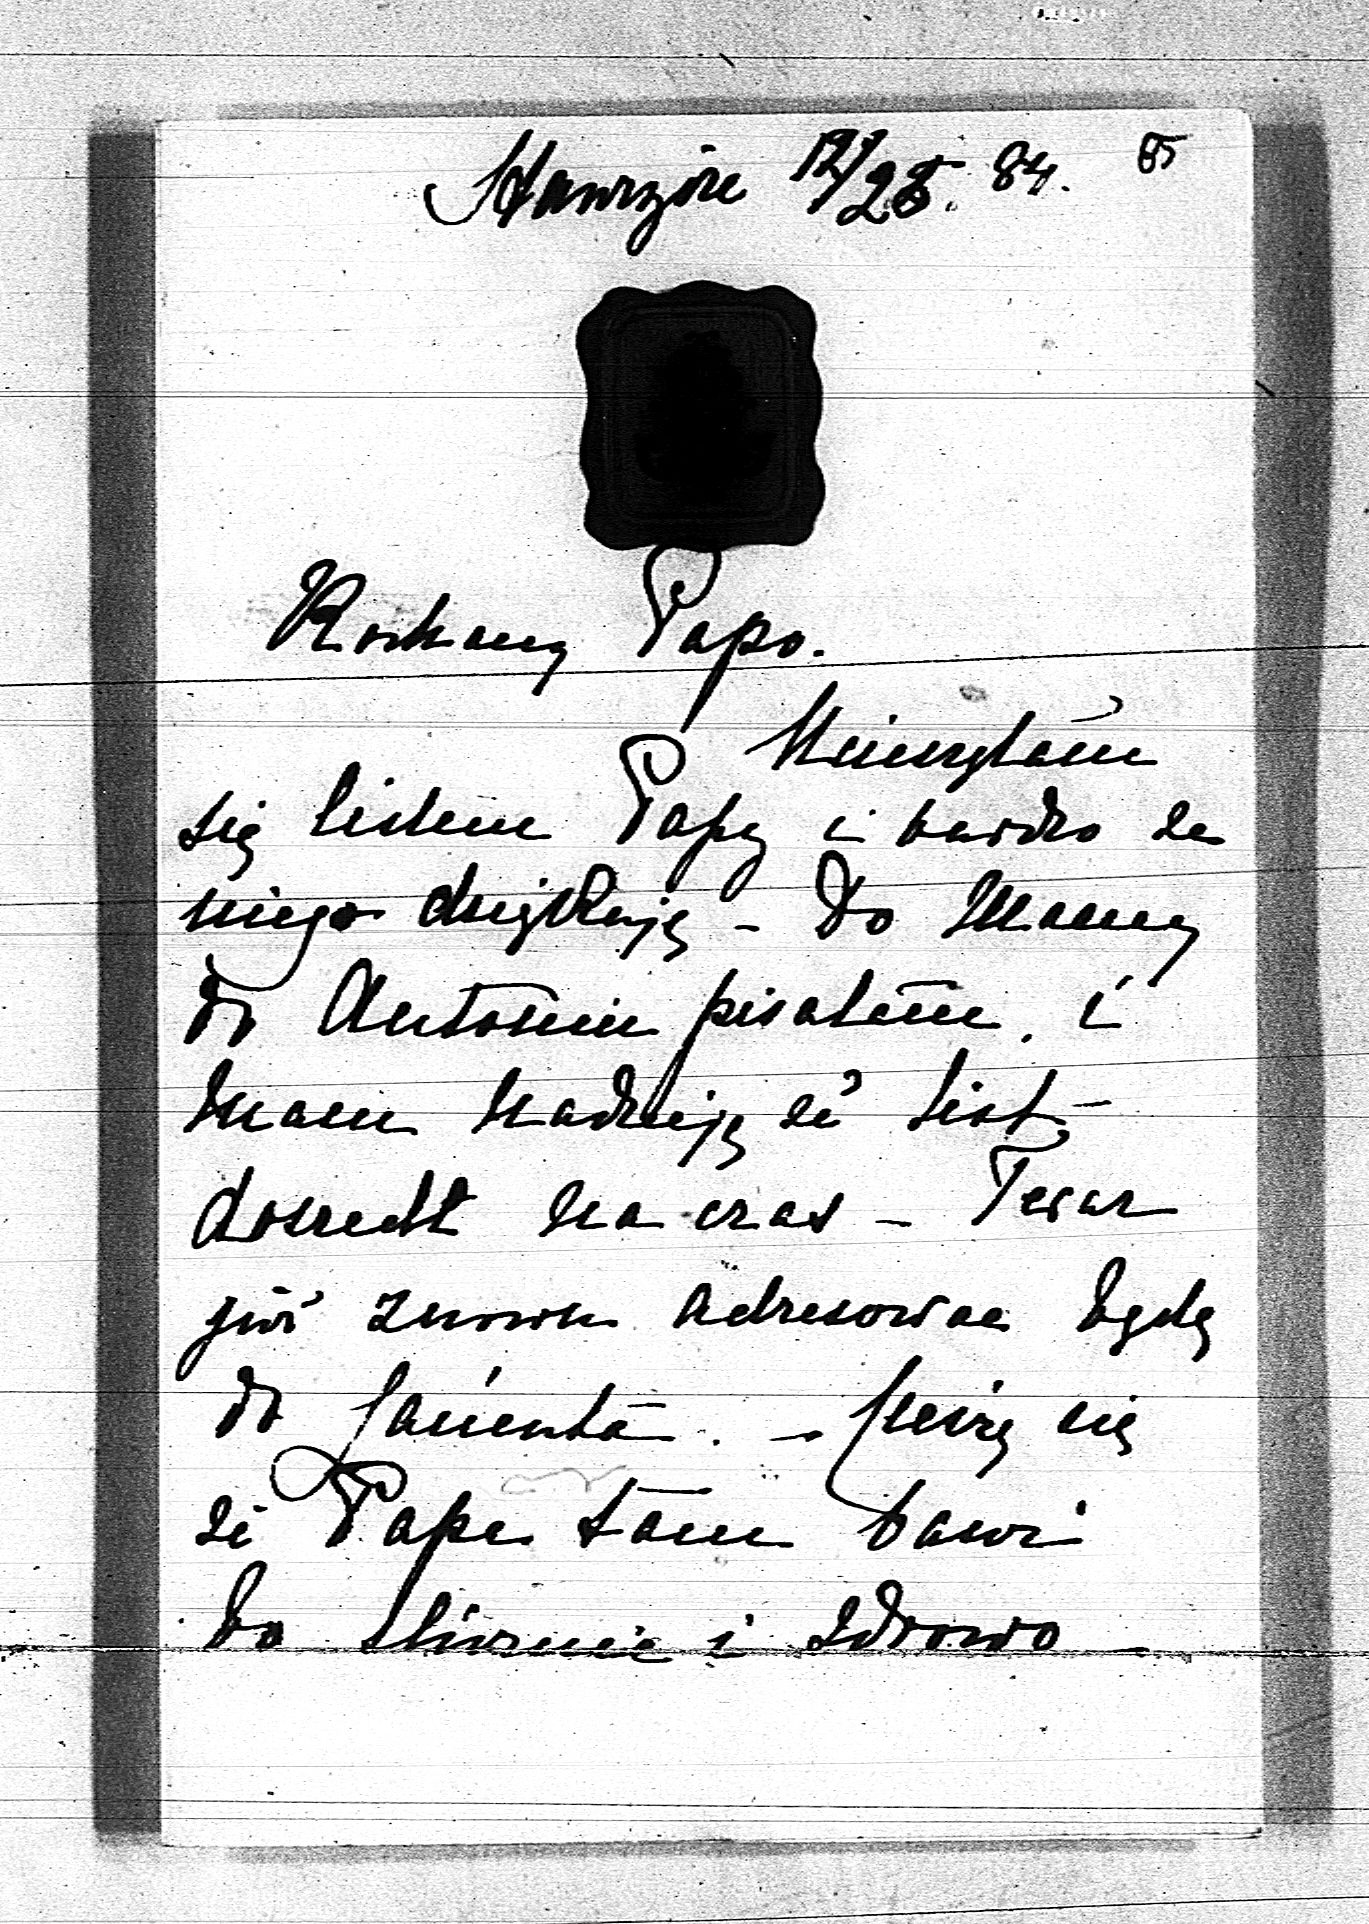 12/28. 84. 85
Kochany Papo.
Ucieszyłam
się listem Papy i bardzo za
niego dziękuję – Do Mamy
do Antonin pisałem, i
mam nadzieję że list
doszedł na czas – Teraz
już znowu adresować będę
do – Cieszę się
że Papa tam bawi
i zdrowo –